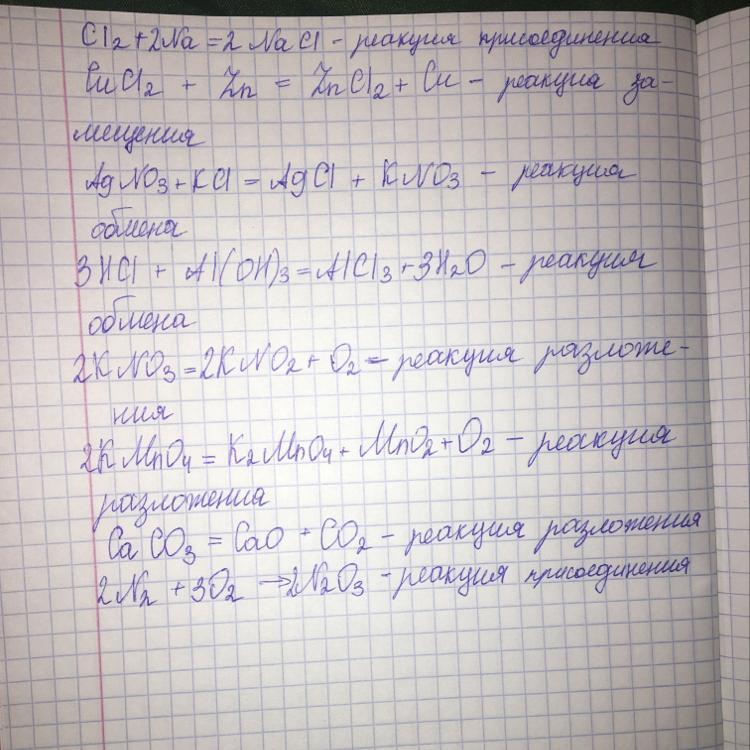 Cl2 + 2Na = 2 NaCl - реакция присоединения
CuCl2 + Zn = ZnCl2 + Cu - реакция за-
мещения
AgNO3 + KCl = AgCl + KNO3 - реакция
обмена
3HCl + Al(OH)3 = AlCl3 + 3H2O - реакция
обмена
2KNO3 = 2KNO2 + O2 - реакция разложе-
ния
2KMnO4 = K2MnO4 + MnO2 + O2 - реакция
разложения
CaCO3 = CaO + CO2 - реакция разложения
2N2 + 3O2 → 2N2O3 - реакция присоединения